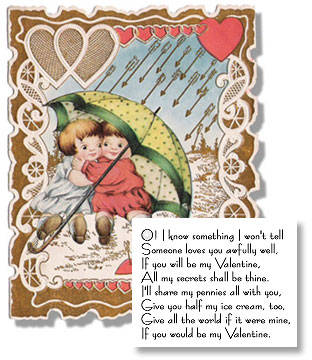 O! I know something I won't tell
Someone loves you awfully well,
If you will be my Valentine,
All my secrets shall be thine.
I'll share my pennies all with you,
Give you half my ice cream, too,
Give all the world if it were mine,
If you would be my Valentine.